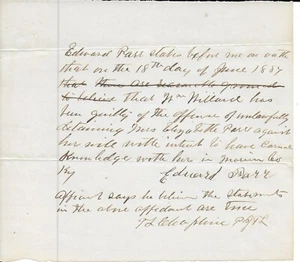 Edward Parr states before me on oath
that on the 18th day of June 1887
that there are reasonable grounds
to believe that Wm Willard has
been guilty of the offense of unlawfully
detaining Mrs Elizabeth Parr against
her will with intent to have Carnal
Knowledge with her in Co
Ky
Edward Parr
Affiant says he believes the statements
in the above affidavit are true